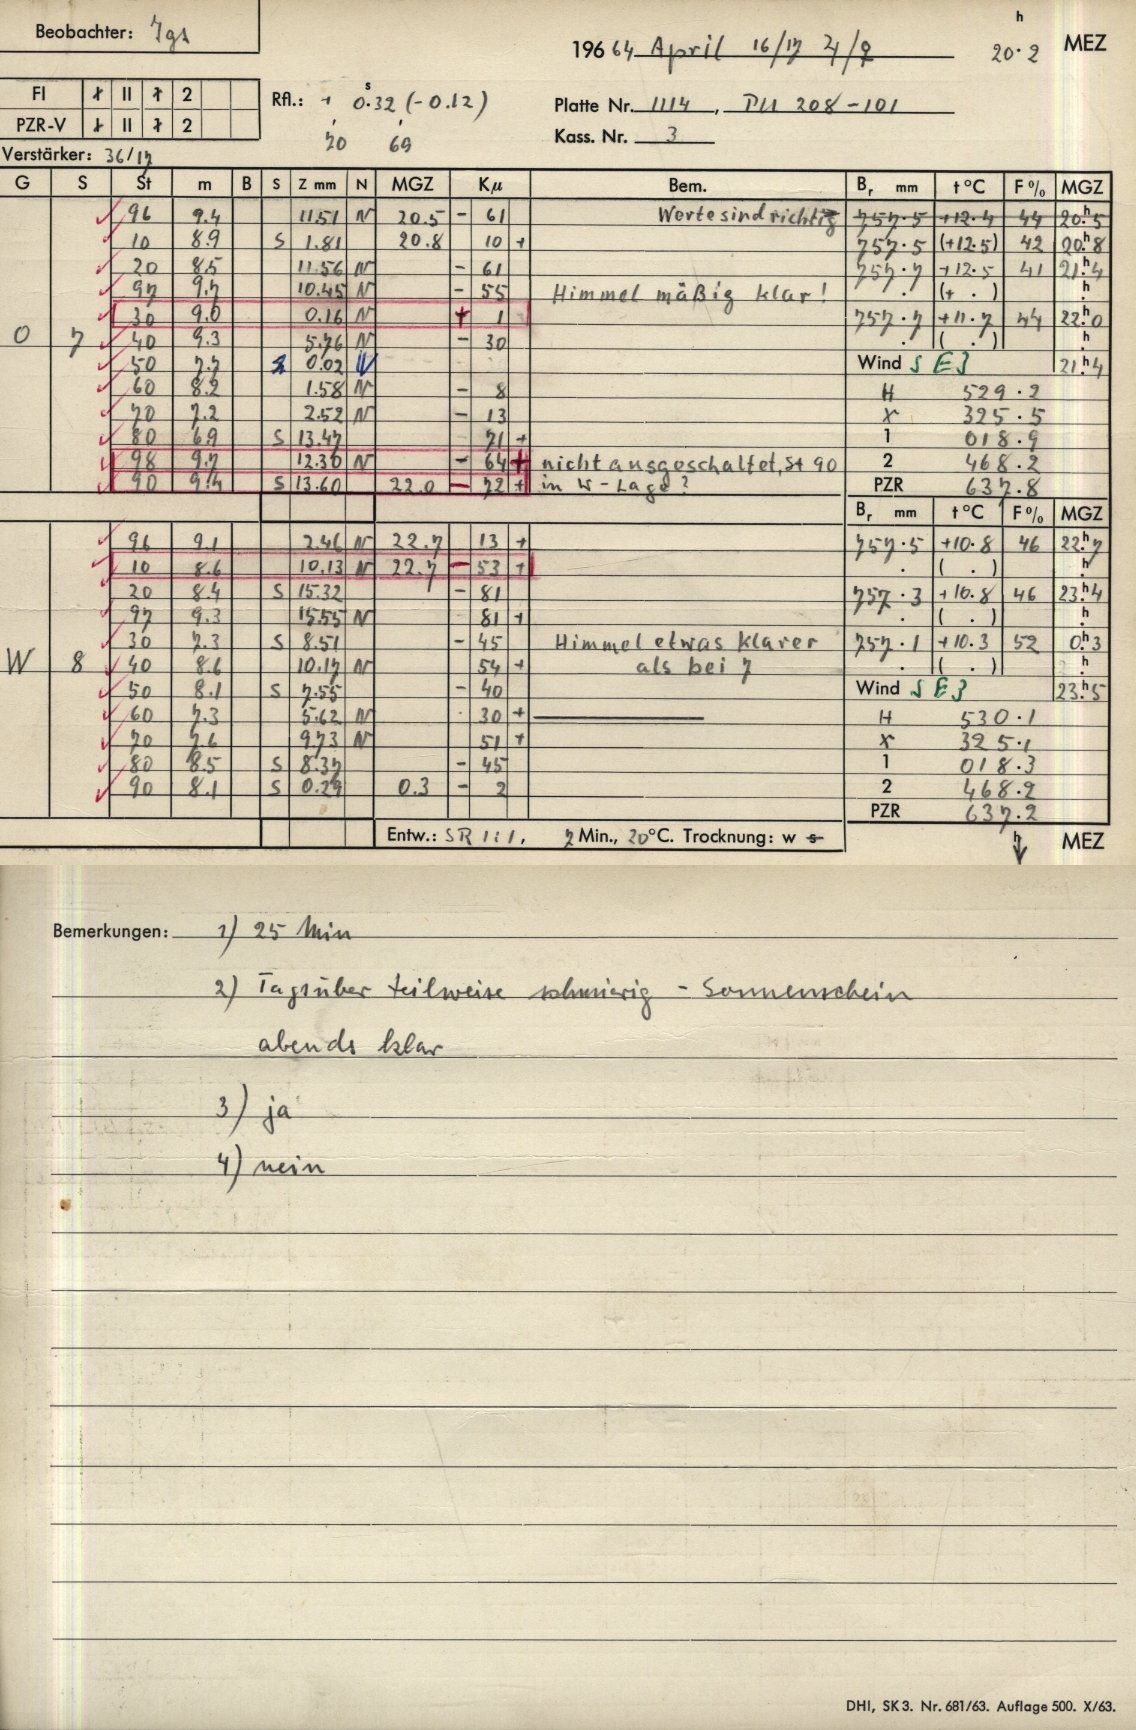 Beobachter: Jgs
196 64 April 16/17 ♃/♀ 20.2 h MEZ
FI I II 1 2
PZR-V I II 1 2
Rfl.: + 0.32 s (-0.12)
70 69
Platte Nr. 1114, DU 208-101
Kass. Nr. 3
Verstärker: 36/17
G S St m B S Z mm N MGZ Kμ Bem. Br mm t °C F % MGZ
96 9.4 11.51 N 20.5 - 61 Werte sind richtig 757.5 +12.4 44 20.h5
10 8.9 S 1.81 20.8 10 + 757.5 (+12.5) 42 20.h8
20 8.5 11.56 N - 61 757.7 +12.5 41 21.h4
97 9.7 10.45 N - 55 Himmel mäßig klar! . (+ . ) h
30 9.0 0.16 N + 1 757.7 +11.7 44 22.h0
O 7 40 9.3 5.76 N - 30 . ( . ) h
50 7.7 0.02 N Wind S E 3 21.h4
60 8.2 1.58 N - 8 H 529.2
70 7.2 2.52 N - 13 X 325.5
80 6.9 S 13.47 - 71 + 1 018.9
98 9.7 12.30 N - 64 + nicht ausgeschaltet, St 90 2 468.2
90 9.4 S 13.60 22.0 - 72 + in W-Lage? PZR 637.8
Br mm t °C F % MGZ
96 9.1 2.46 N 22.7 13 + 757.5 +10.8 46 22.h7
10 8.6 10.13 N 22.7 - 53 + . ( . ) h
20 8.4 S 15.32 - 81 757.3 +10.8 46 23.h4
97 9.3 15.55 N 81 + . ( . ) h
30 7.3 S 8.51 - 45 Himmel etwas klarer 757.1 +10.3 52 0.h3
W 8 40 8.6 10.17 N 54 + als bei 7 . ( . ) h
50 8.1 S 7.55 - 40 Wind S E 3 23.h5
60 7.3 5.62 N 30 + H 530.1
70 7.6 9.73 N 51 + X 325.1
80 8.5 S 8.37 - 45 1 018.3
90 8.1 S 0.29 0.3 - 2 2 468.2
PZR 637.2
Entw.: SR 1:1, 7 Min., 20°C. Trocknung: w s h MEZ
Bemerkungen: 1) 25 Min
2) Tagsüber teilweise schmierig - Sonnenschein
abends klar
3) ja
4) nein
DHI, SK 3. Nr. 681/63. Auflage 500. X/63.